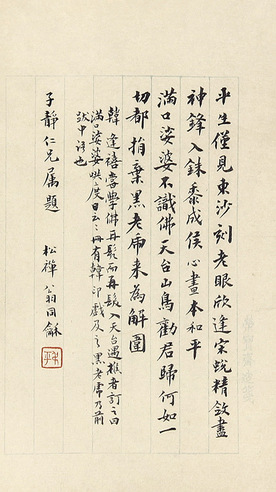 平生僅見東沙刻老眼欣逢宋蛻精斂盡
神鋒入銖黍成侯心畫本和平
滿口婆婆不識佛天台山鳥勸君歸何如一
切都捐棄黑老虎來為解圍
韓逢禧嘗學佛再髡而再髮入天台遇樵者訂之曰
滿口婆婆哄度日云云冊有韓印戲及之黑老虎乃前
跋中語也
子靜仁兄屬題
松禪翁同龢